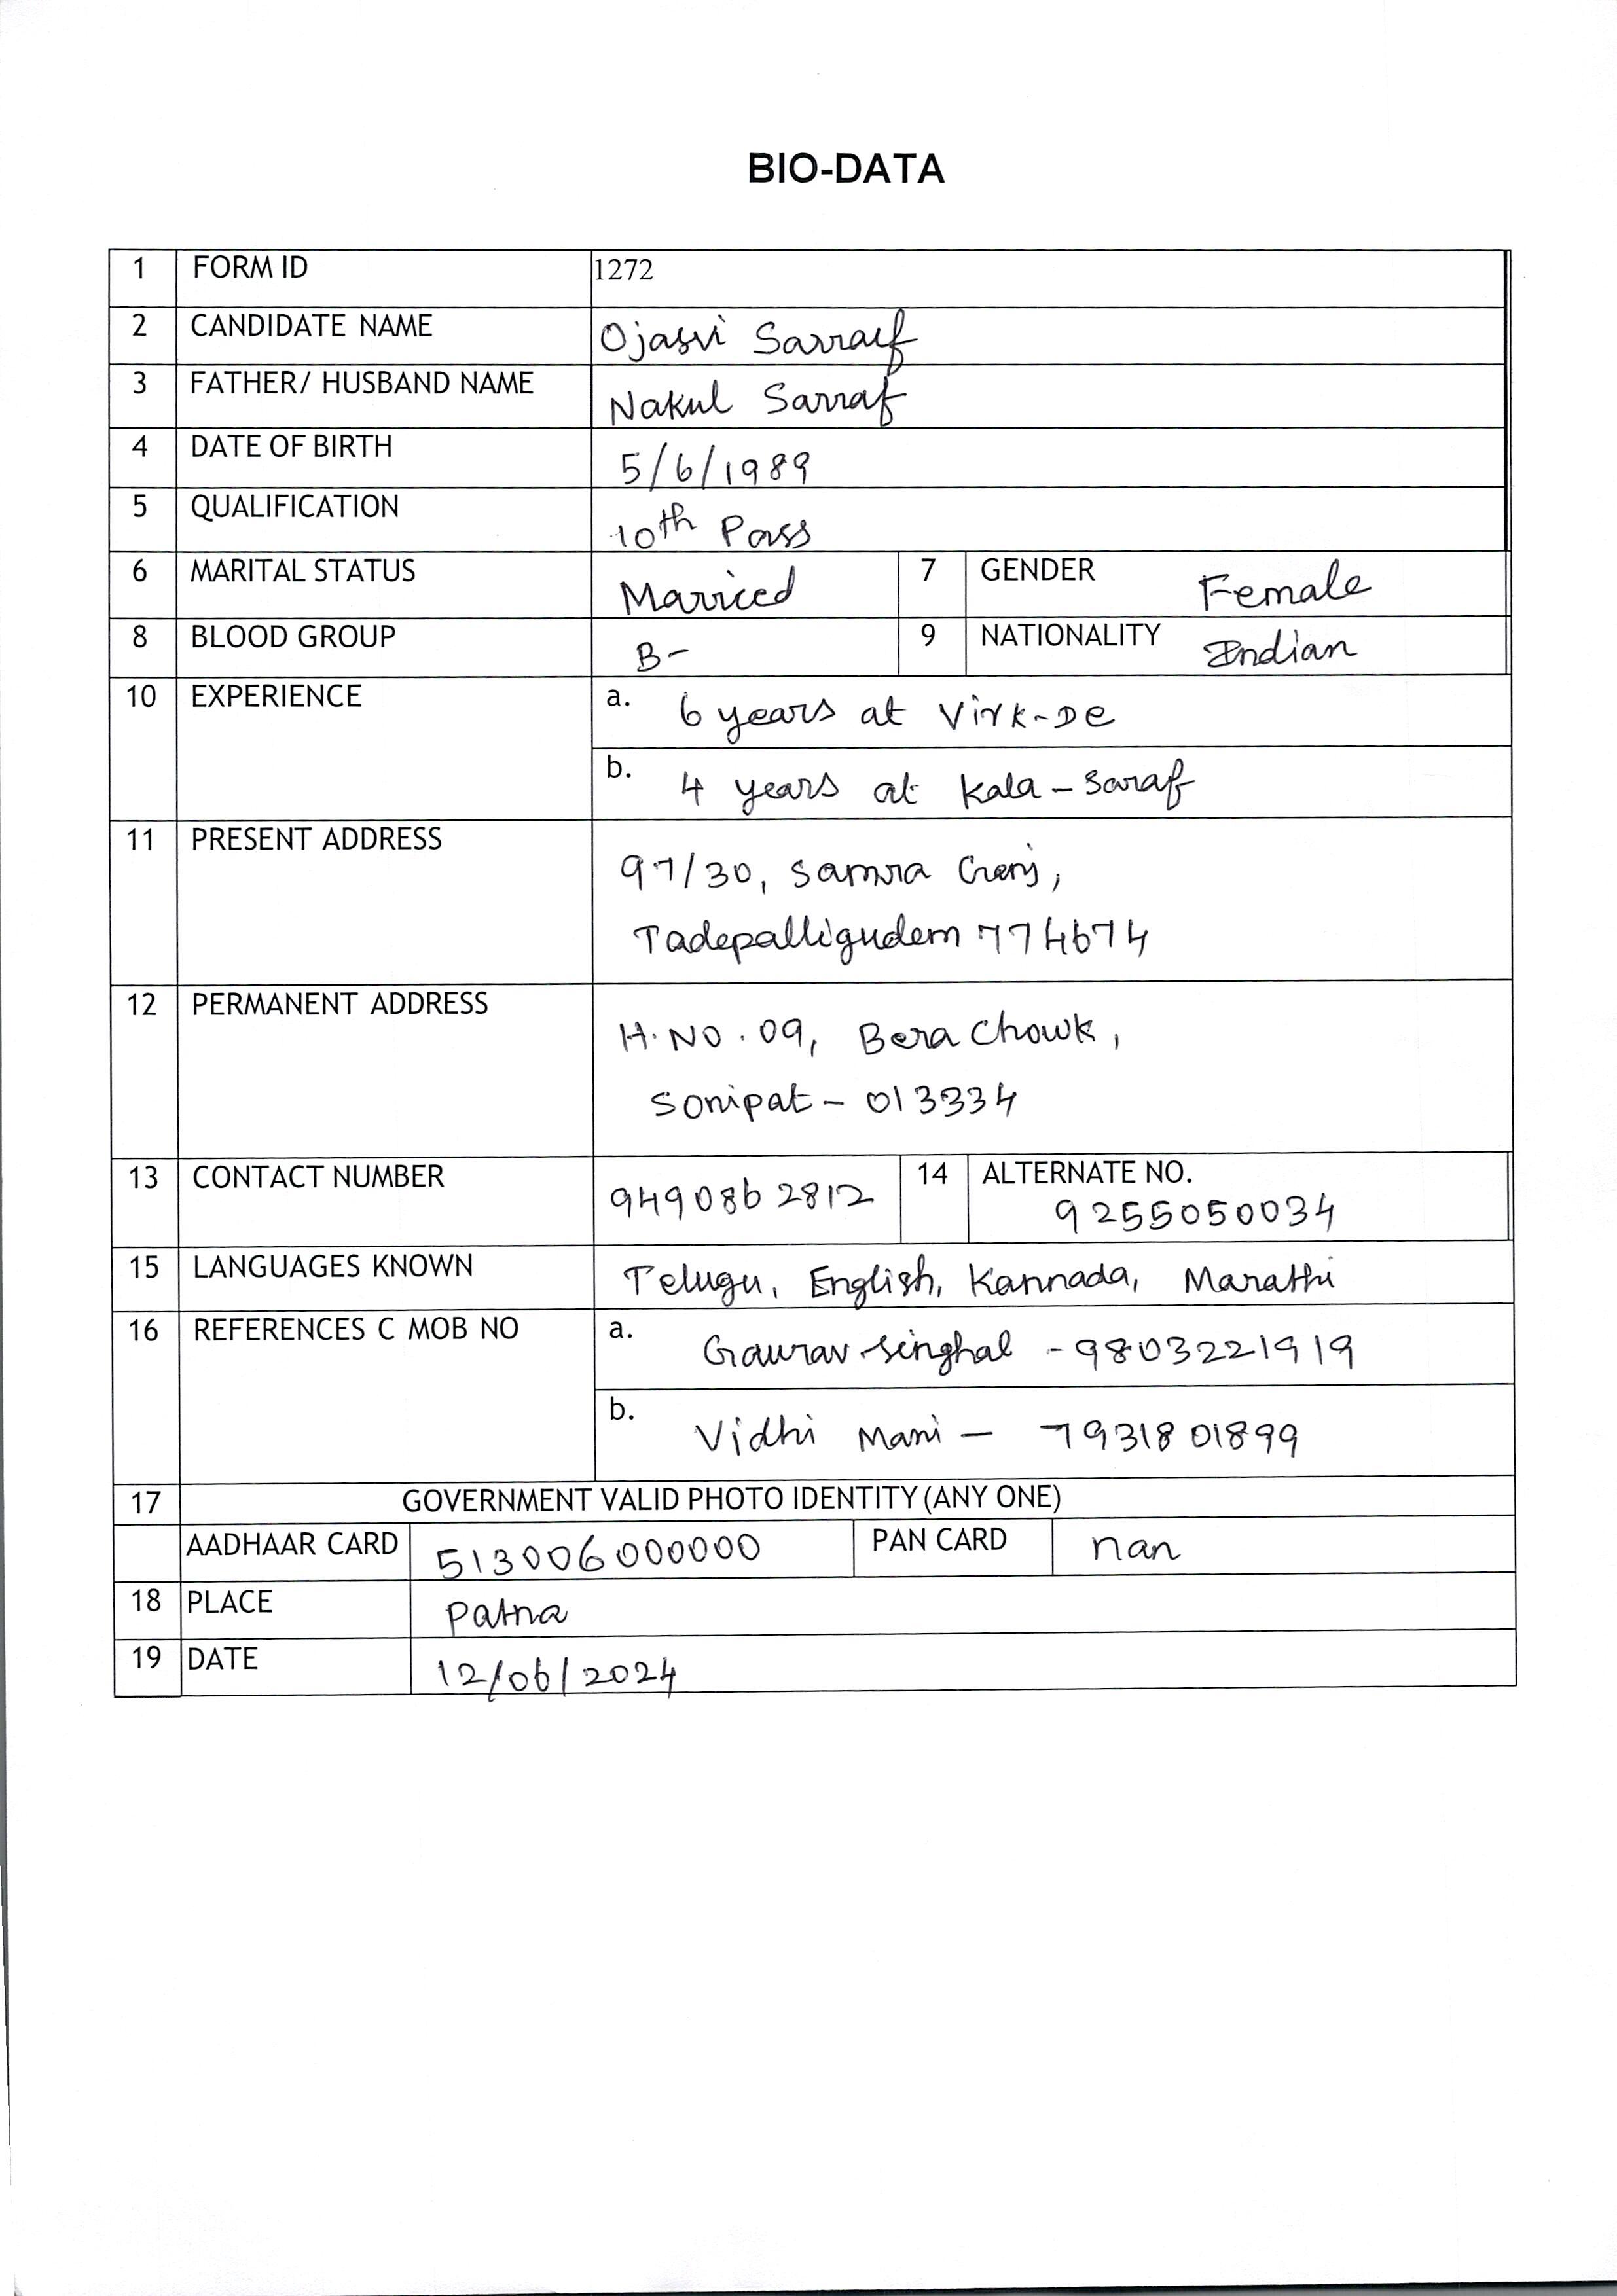 BIO-DATA
1 FORM ID 1272
2 CANDIDATE NAME Ojasvi Sarraf
3 FATHER/ HUSBAND NAME Nakul Sarraf
4 DATE OF BIRTH 5/6/1989
5 QUALIFICATION 10th Pass
6 MARITAL STATUS Married 7 GENDER Female
8 BLOOD GROUP B- 9 NATIONALITY Indian
10 EXPERIENCE a. 6 years at Virk-De
b. 4 years at Kala-Saraf
11 PRESENT ADDRESS
97/30, Samra Ganj,
Tadepalligudem 774674
12 PERMANENT ADDRESS
H.NO.09, Bera Chowk,
Sonipat- 013334
13 CONTACT NUMBER 9490862812 14 ALTERNATE NO.
9255050034
15 LANGUAGES KNOWN Telugu, English, Kannada, Marathi
16 REFERENCES C MOB NO a. Gaurav singhal - 9803221919
b. Vidhi Mani - 7931801899
17 GOVERNMENT VALID PHOTO IDENTITY (ANY ONE)
AADHAAR CARD 513006000000 PAN CARD nan
18 PLACE Patna
19 DATE 12/06/2024